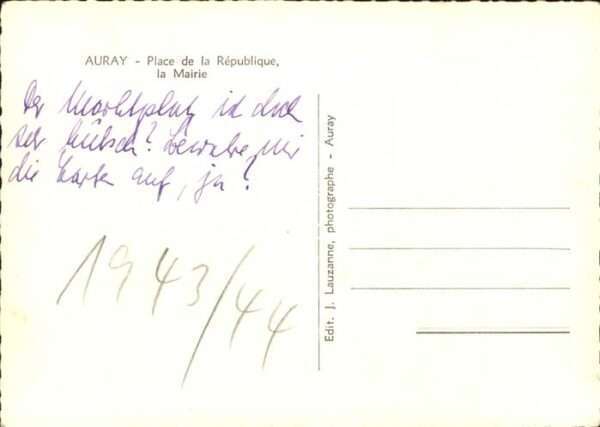 AURAY - Place de la République,
la Mairie
Der Marktplatz ist doch
sehr hübsch? Bewahre mir
die Karten auf, ja?
1943/44
Edit. J. Lauzanne, photographe - Auray